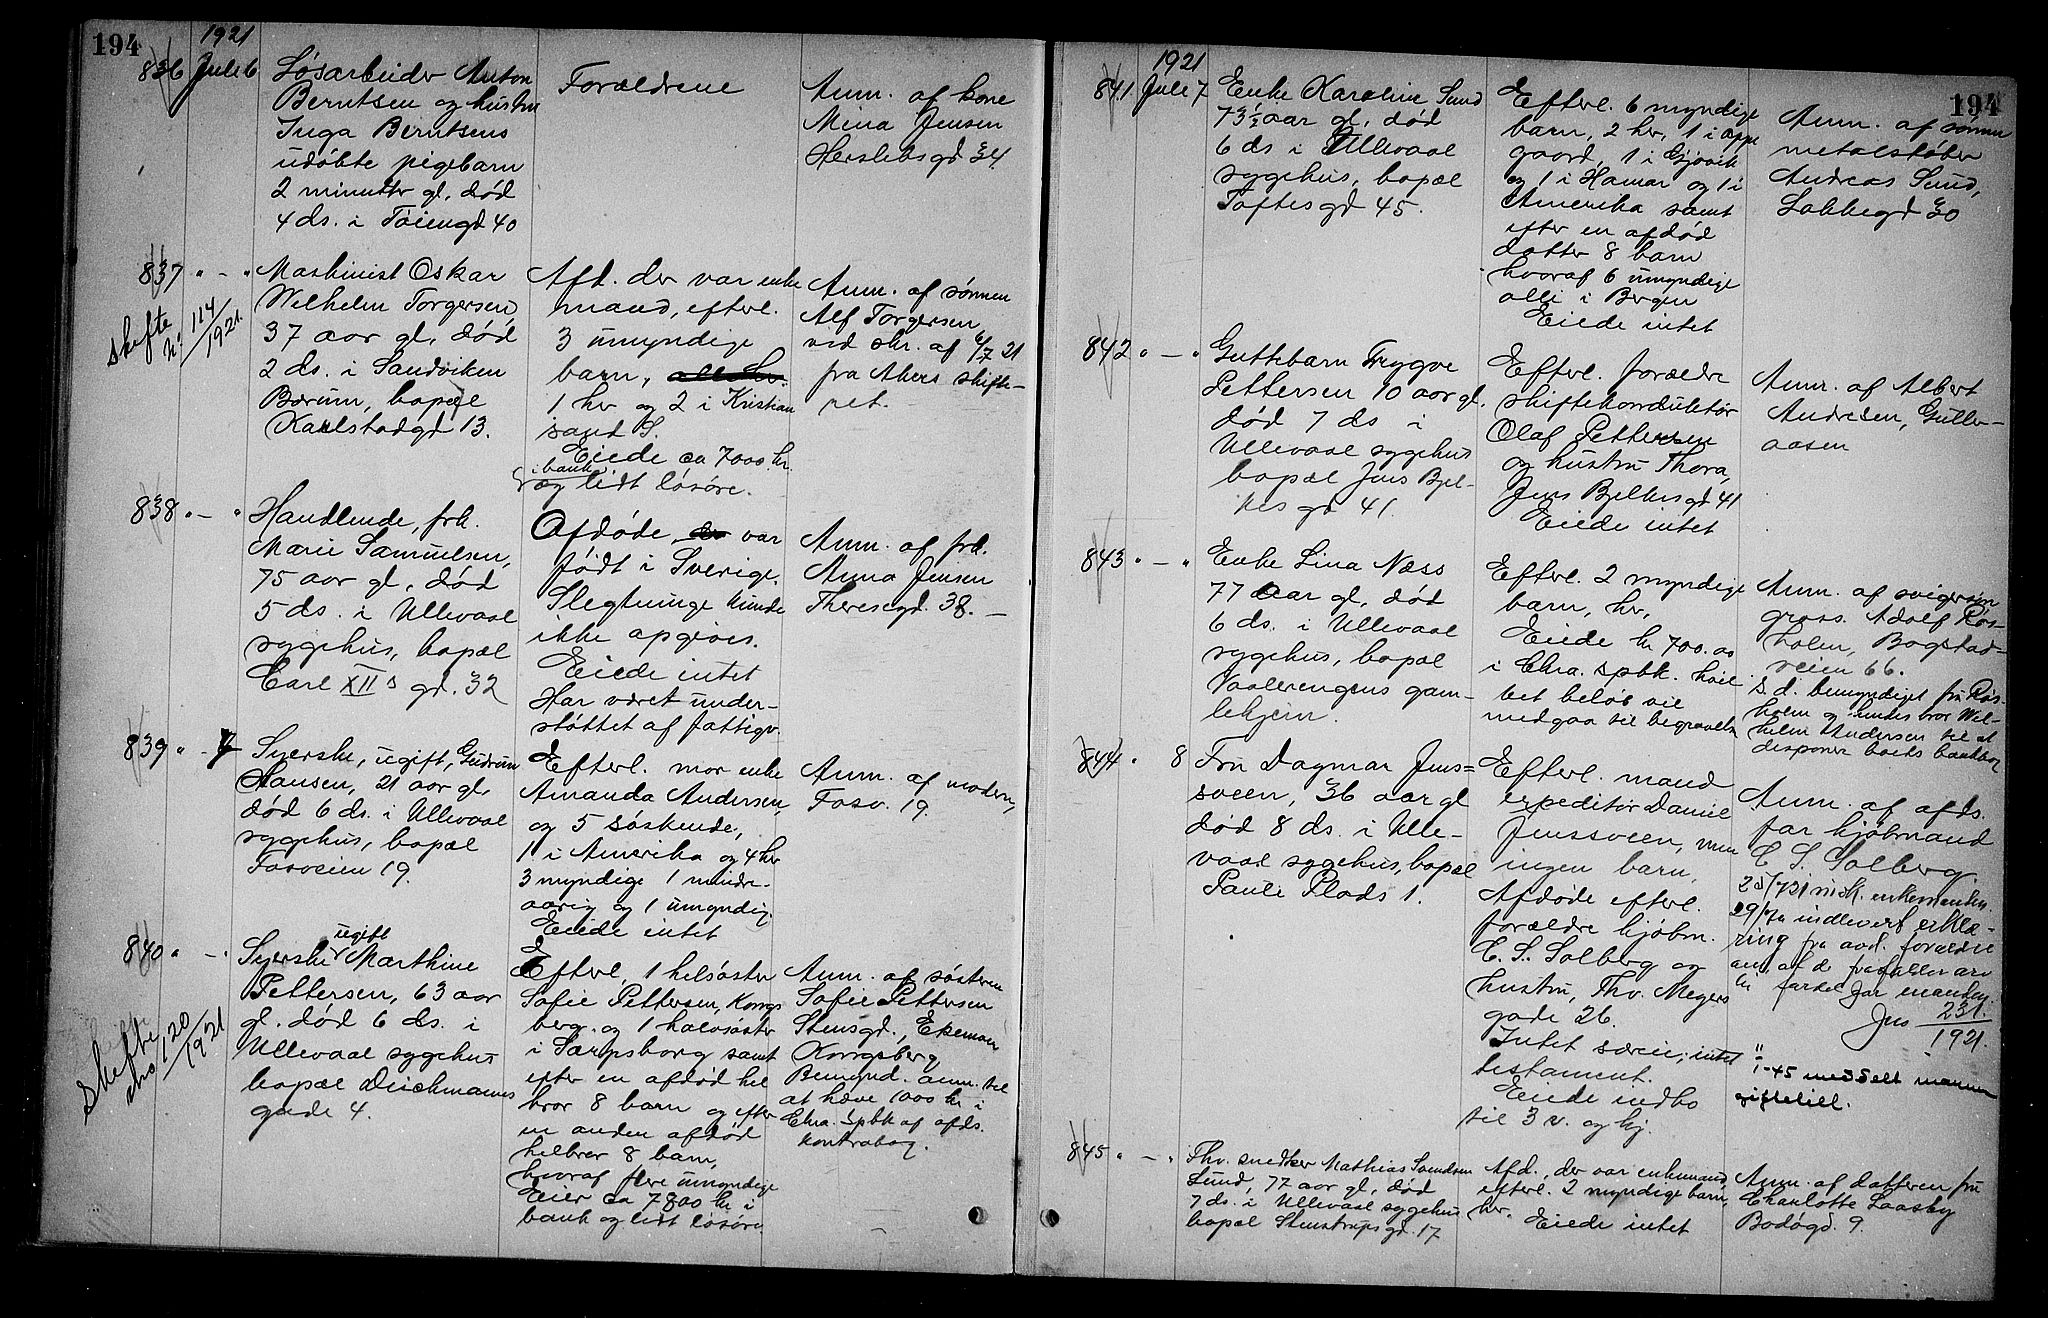 194
1921
836 Juli 6
Løsarbeider Anton
Berntsen og hustru
Inga Berntsens
udøbte pigebarn
2 minutter gl., død
4 ds. i Tøiengd 40
Forældrene
Anm. af kone
Mina Jensen
Herslebsgd 34.
837 " - "
Skifte
Nr. 114/1921.
Maskinist Oskar
Wilhelm Torgersen,
37 aar gl., død
2 ds. i Sandviken
Bærum, bopæl
Karlstadgd 13.
Afd. der var enke
mand, efterl.
3 umyndige
barn,
1 her og 2 i Kristian
sand S.
Eiede ca 7000 kr.
i bank
og lidt løsøre.
Anm. af sønnen
Alf Torgersen
ved skr. af 6/7 21
fra Akers skifte-
ret.
838 " - "
Handlende, frk.
Marie Samuelsen,
75 aar gl., død
5 ds. i Ullevaal
sygehus, bopæl
Carl XII s gd. 32
Afdøde, der var
født i Sverige.
Slegtninge kunde
ikke opgives.
Eiede intet
Har været under-
støttet af fattigv.
Anm. af frk.
Anna Jensen
Theresegd. 38. -
839 " - 7
Syerske, ugift, Gudrun
Hansen, 21 aar gl.
død 6 ds. i Ullevaal
sygehus, bopæl
Fosveien 19.
Efterl. mor enke
Amanda Andersen,
og 5 søskende,
1 i Amerika og 4 her
3 myndige 1 mindre-
aarig og 1 umyndig.
Eiede intet
Anm. af moderen,
Fosv. 19.
840 " - "
Skifte
120/1921
ugift
Syerske Marthine
Pettersen, 63 aar
gl. død 6 ds. i
Ullevaal sygehus
bopæl Deichmanns
gade 4.
Efterl. 1 helsøster
Sofie Pettersen, Kongs
berg. og 1 halvsøster
i Sarpsborg samt
efter en afdød hel
bror 8 barn og efter
en anden afdød
helbror 8 barn,
hvoraf flere umyndige
Eier ca 7800 kr i
bank og lidt løsøre.
Anm. af søsteren
Sofie Pettersen
Stensgd.,
Kongsberg
Bemynd. anm. til
at hæve 1000 kr i
Chra. Spbk af afds.
kontrabog.
194
1921
841 Juli 7
Enke Karoline Sund
73 1/2 aar gl., død
6 ds i Ullevaal
sygehus, bopæl
Toftesgd 45.
Efterl. 6 myndige
barn, 2 her, 1 i Oppe
gaard, 1 i Gjøvik
og 1 i Hamar og 1 i
Amerika samt
efter en afdød
datter 8 barn
hvoraf 6 umyndige
alli i Bergen
Eiede intet
Anm. af sønnen
metalstøber
Andreas Sund,
Lakkegd 30
842 " - "
Guttebarn Trygve
Pettersen 10 aar gl.
død 7 ds i
Ullevaal sygehus
bopæl Jens Bjel-
kes gd 41.
Efterl. forældre
skiftekonduktør
Olaf Pettersen
og hustru Thora,
Jens Bjelkesgd 41
Eiede intet
Anm. af Albert
Andresen, Guller-
aasen
843 " - "
Enke Lina Næss
77 aar gl., død
6 ds. i Ullevaal
sygehus, bopæl
Vaalerengens gam-
lehjem.
Efterl. 2 myndige
barn, her,
Eiede kr 700.00
i Chra. spbk. hvil
ket beløb vil
medgaa til begravelse
Anm. af svigersøn
gross. Adolf Røs-
holm, Bogstad-
veien 66.
S. d. bemyndiget fru Røs-
holm og hendes bror Wil-
helm Andersen til at
disponere boets bankbog
844 " 8
Fru Dagmar Jens-
sveen, 36 aar gl
død 8 ds. i Ulle-
vaal sygehus, bopæl
Pauli Plads 1.
Efterl. mand
expeditør Daniel
Jenssveen, men
ingen barn,
Afdøde efterl.
forældre kjøbm.
C. S. Solberg og
hustru, Thv. Meyers
gade 26.
Intet særeie, intet
testament.
Eiede indbo
til 3 v. og kj.
Anm. af afds.
far kjøbmand
C. S. Solberg.
enkemanden.
indlevert erklæ-
ring fra avd. forældre
om at de frafaller arv
til fordel for manden.
Jns 231/1921.
meddelt
845 " - "
Fhv. snedker Mathias Svendsen
Lund, 77 aar gl., død
7 ds. i Ullevaal sygehus
bopæl Stenstrupsgd. 17
Afd., der var enkemand
efterl. 2 myndige barn,
her. Eiede intet
Anm. af datteren fru
Charlotte Laasby
Bodøgd. 9.